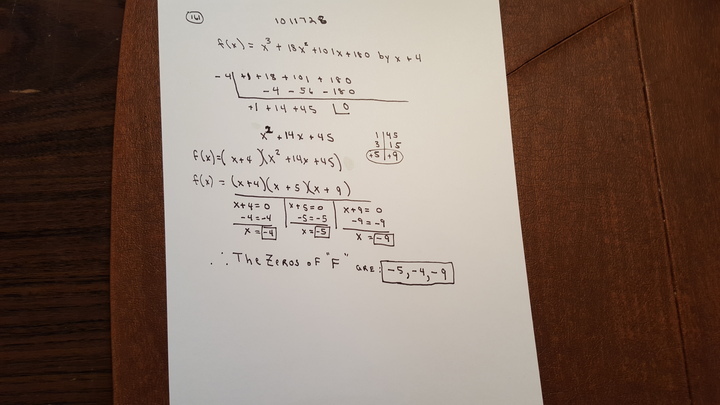 161
1011728
f(x) = x³ + 18x² + 101x + 180 by x + 4
-4 +1 + 18 + 101 + 180
- 4 - 56 - 180
+1 + 14 + 45 0
x² + 14x + 45
1 45
3 15
+5 +9
f(x) = (x+4)(x² + 14x + 45)
f(x) = (x+4)(x + 5)(x + 9)
x+4 = 0 x+5 = 0 x+9 = 0
-4 = -4 -5 = -5 -9 = -9
x = -4 x = -5 x = -9
∴ The Zeros of "F" are: -5, -4, -9